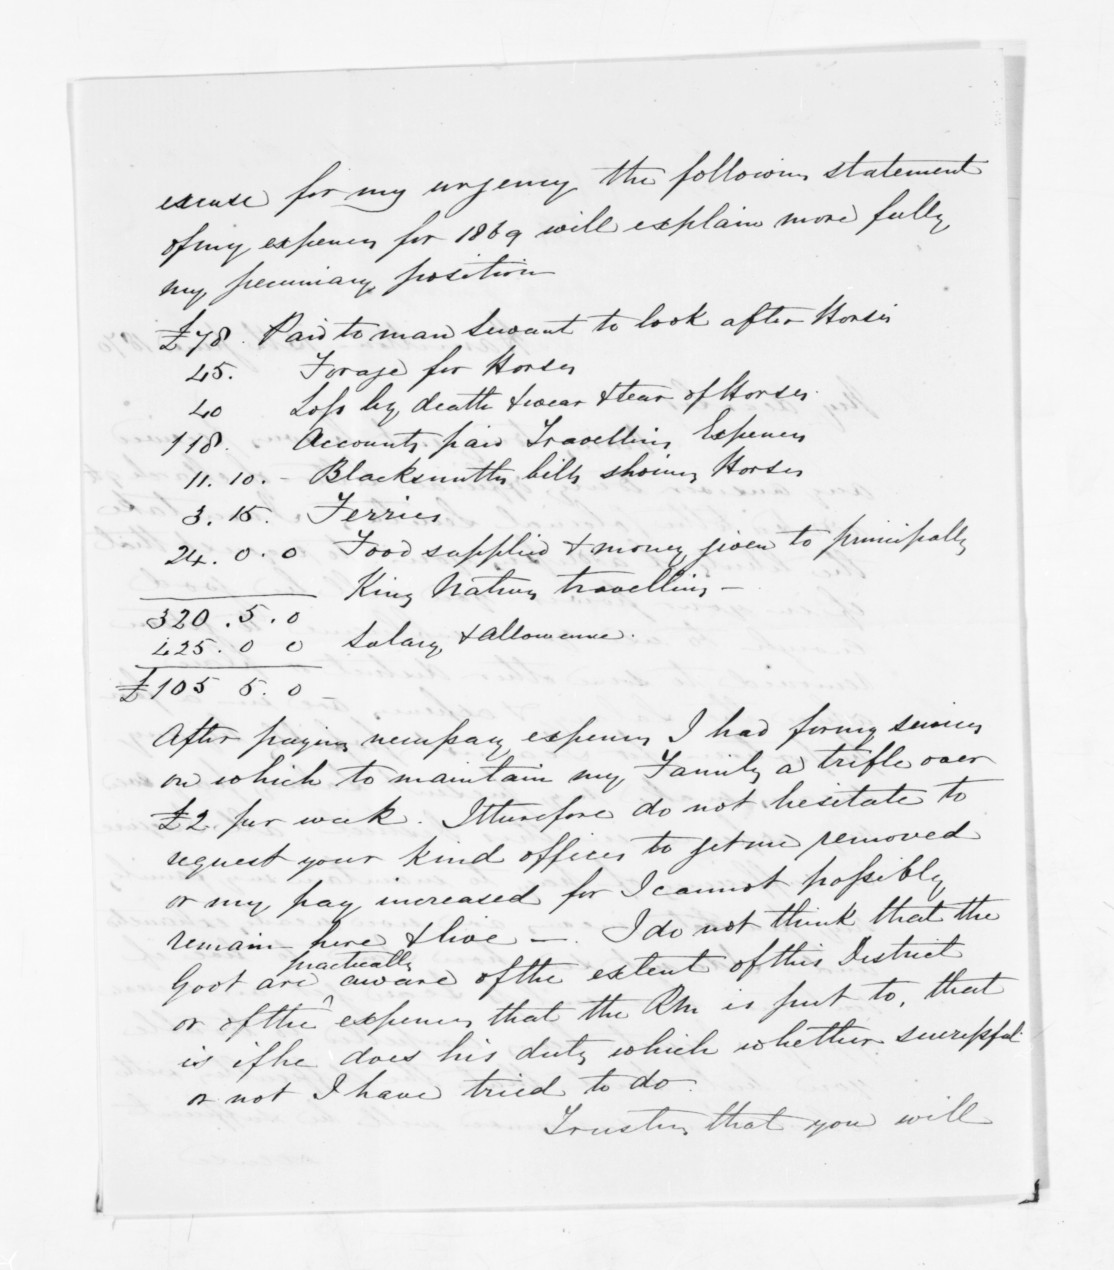 excuse for my urgency the following statement
of my expences for 1869 will explain more fully
my pecuniary position
£78. Paid to man Servant to look after Horses
45. Forage for Horses
40 Loss by death & wear & tear of Horses.
118. Accounts paid Travelling Expences
11. 10. - Blacksmiths bills shoeing Horses
3. 15. Ferries
24. 0. 0 Food supplied & money given to principally
King Natives travelling -
320. 5. 0
425. 0 0 Salary & allowance.
£105 5. 0
After paying necessary expences I had for my services
on which to maintain my Family a trifle over
£2. per week. I therefore do not hesitate to
request your kind offices to get me removed
or my pay increased for I cannot possibly
remain here & live -. I do not think that the
Govt are practically aware of the extent of this District
or of the expences that the RM is put to, that
is if he does his duty which whether successful
or not I have tried to do.
Trusting that you will